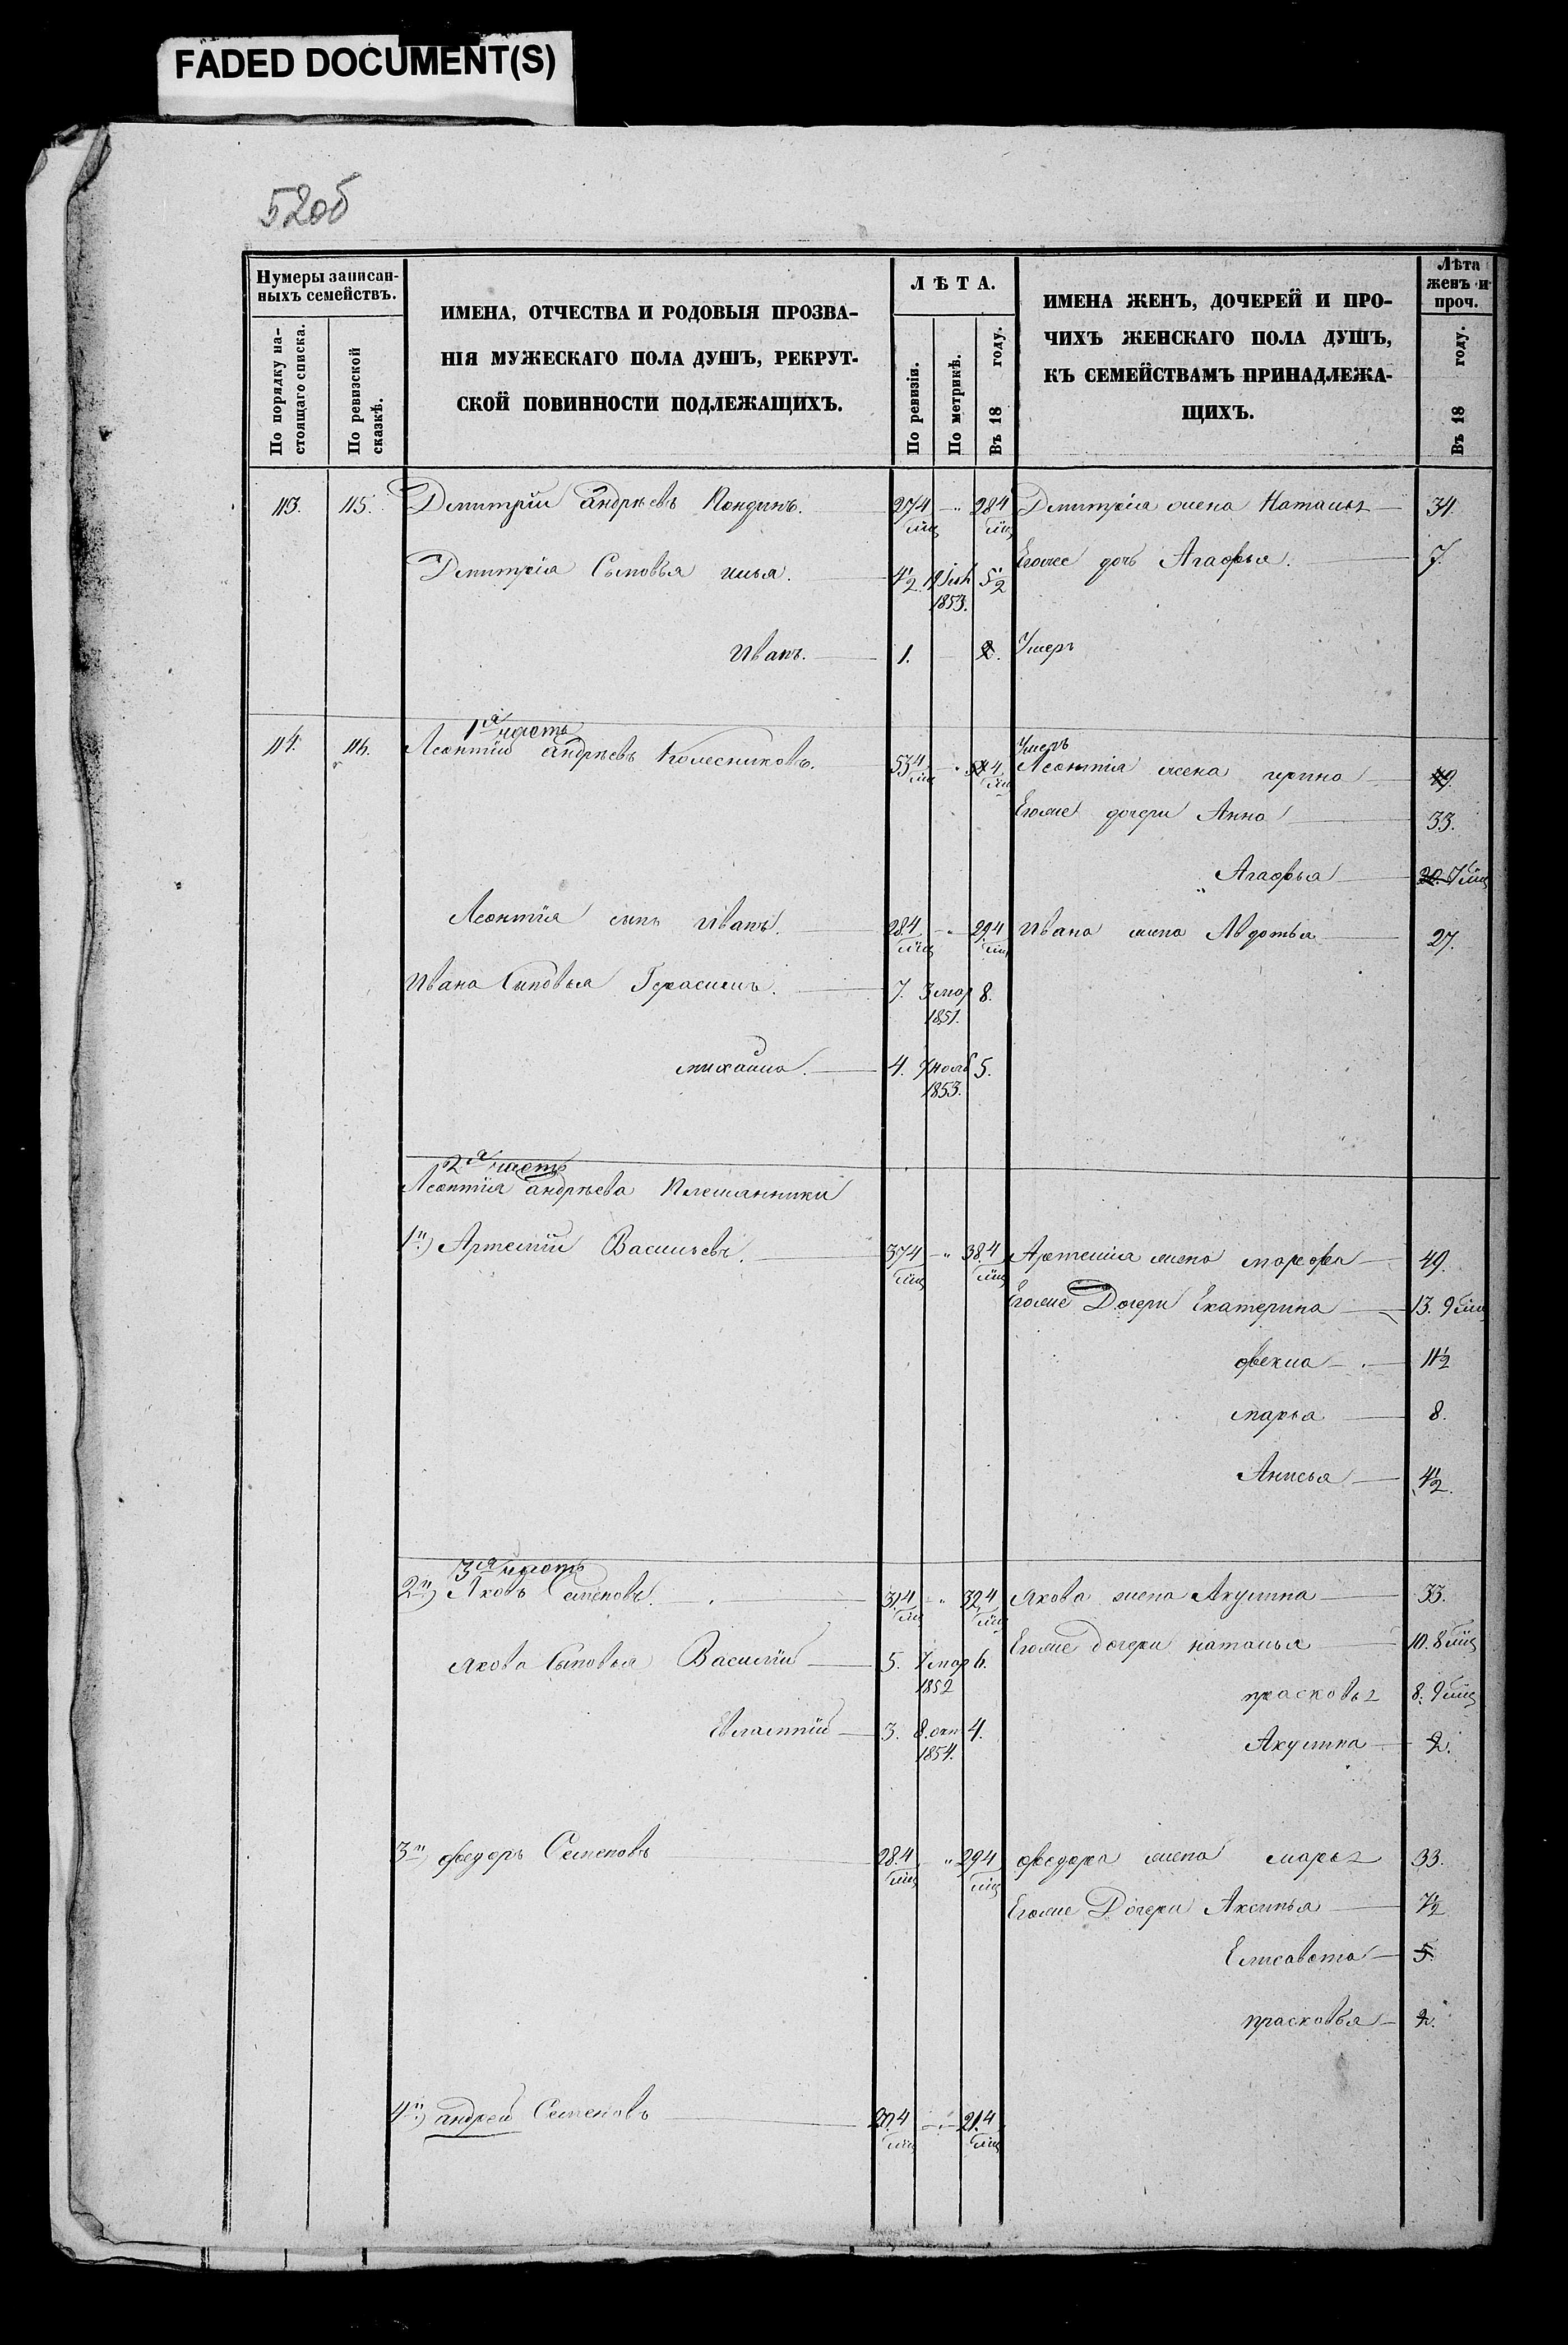 FADED DOCUMENT(S)
52об
Нумеры записан-
ныхъ семействъ.
По порядку на-
стоящаго списка.
По ревизской
сказкѣ.
ИМЕНА, ОТЧЕСТВА И РОДОВЫЯ ПРОЗВА-
НІЯ МУЖЕСКАГО ПОЛА ДУШЪ, РЕКРУТ-
СКОЙ ПОВИННОСТИ ПОДЛЕЖАЩИХЪ.
ЛѢТА.
По ревизіи.
По метрикѣ.
Въ 18 году.
ИМЕНА ЖЕНЪ, ДОЧЕРЕЙ И ПРО-
ЧИХЪ ЖЕНСКАГО ПОЛА ДУШЪ,
КЪ СЕМЕЙСТВАМЪ ПРИНАДЛЕЖА-
ЩИХЪ.
Лѣта
женъ и
проч.
Въ 18 году.
113. 115. Дмитрій андрѣевъ 27 4/мѣц — „ 28 4/мѣц Дмитрія жена Наталья — 34.
Егоже дочь Агафья. — 7.
Дмитрія Сыновья илья. 4 1/2 1853. 5 1/2
Иванъ. — 1. — 2. Умеръ
1я часть
114. 116. Леонтій андрѣевъ Колесниковъ. 53 4/мѣц — „ 54 4/мѣц Умеръ
Леонтія жена ирина — 49.
Егоже дочери Анна — 33.
Агафья — 20. 7 мѣц
Леонтія сынъ Иванъ. 28 4/мѣц — „ 29 4/мѣц Ивана жена Авдотья — 27.
Ивана Сыновья Герасимъ. — 7. 3 мар 1851. 8.
михайла. — 4. 7 нояб 1853. 5.
2я часть
Леонтія андрѣева Племянники
1й) Артемій Васильевъ. — 37 4/мѣц — „ 38 4/мѣц Артемія жена марфа — 49.
Егоже Дочери Екатерина — 13. 9 мѣц
фекла — 11 1/2
марья — 8.
Анисья — 4 1/2.
3я часть
2й) Яковъ Семеновъ. — 31 4/мѣц — „ 32 4/мѣц якова жена Акулина — 33.
Егоже дочери наталья — 10. 8 мѣц
якова Сыновья Василій — 5. 7 мар 1852 6.
прасковья 8. 9 мѣц
Евлампій — 3. 8. окт 1854. 4.
Акулина — 2.
3й) федоръ Семеновъ — 28 4/мѣц „ 29 4/мѣц федора жена марья 33.
Егоже Дочери Аксинья — 7 1/2
Елисавета — 5.
прасковья — 2.
4й) андрей Семеновъ — 20. 4/мѣц — „ — 21. 4/мѣц